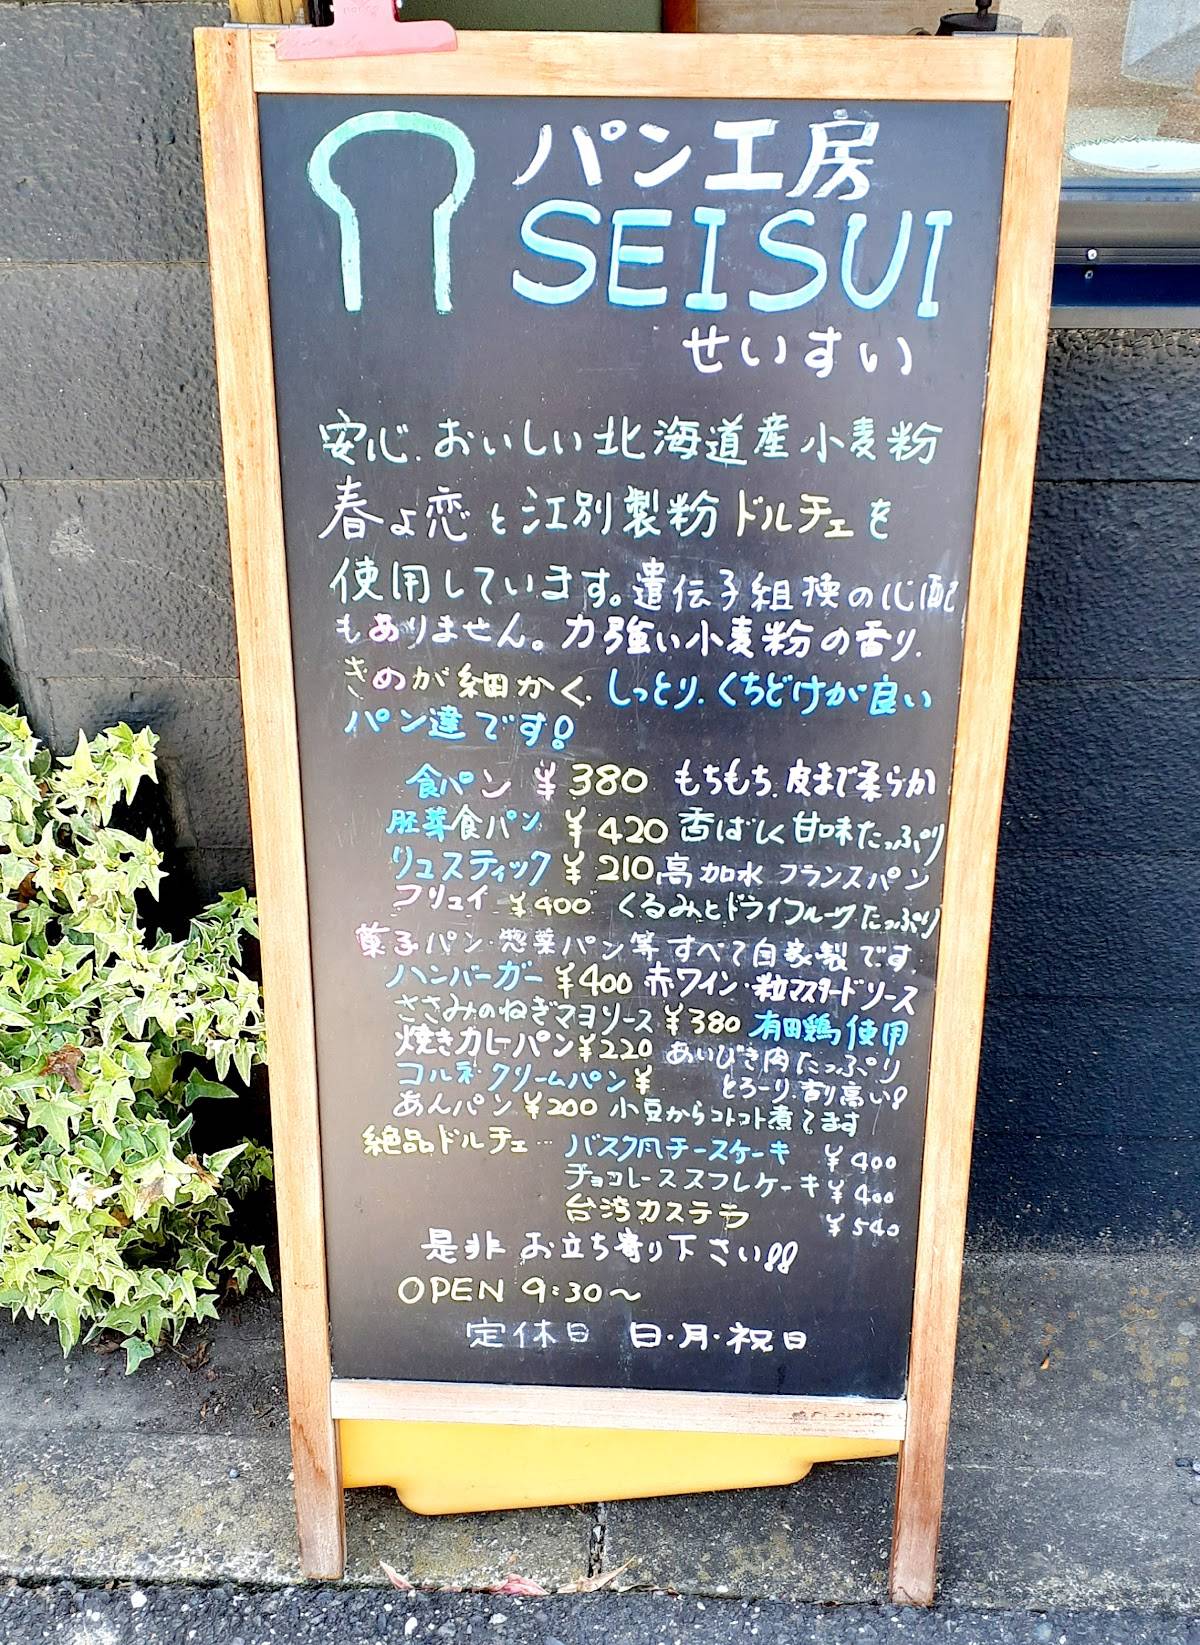 パン工房
SEISUI
せいすい
安心.おいしい北海道産小麦粉
春よ恋と江別製粉ドルチェを
使用しています。遺伝子組換の心配
もありません。力強い小麦粉の香り.
きめが細かく.しっとり.くちどけが良い
パン達です!
食パン ¥380 もちもち.皮まで柔らか
胚芽食パン ¥420 香ばしく甘味たっぷり
リュスティック ¥210 高加水 フランスパン
フリュイ ¥400 くるみとドライフルーツたっぷり
菓子パン・惣菜パン等すべて自家製です.
ハンバーガー ¥400 赤ワイン・粒マスタードソース
ささみのねぎマヨソース ¥380 有田鶏使用
焼きカレーパン ¥220 あいびき肉たっぷり
コルネクリームパン ¥ とろーり.香り高い!
あんパン ¥200 小豆からコトコト煮てます
絶品ドルチェ… バスク風チースケーキ ¥400
チョコレーススフレケーキ ¥400
台湾カステラ ¥540
是非お立ち寄り下さい!!
OPEN 9:30〜
定休日 日・月・祝日